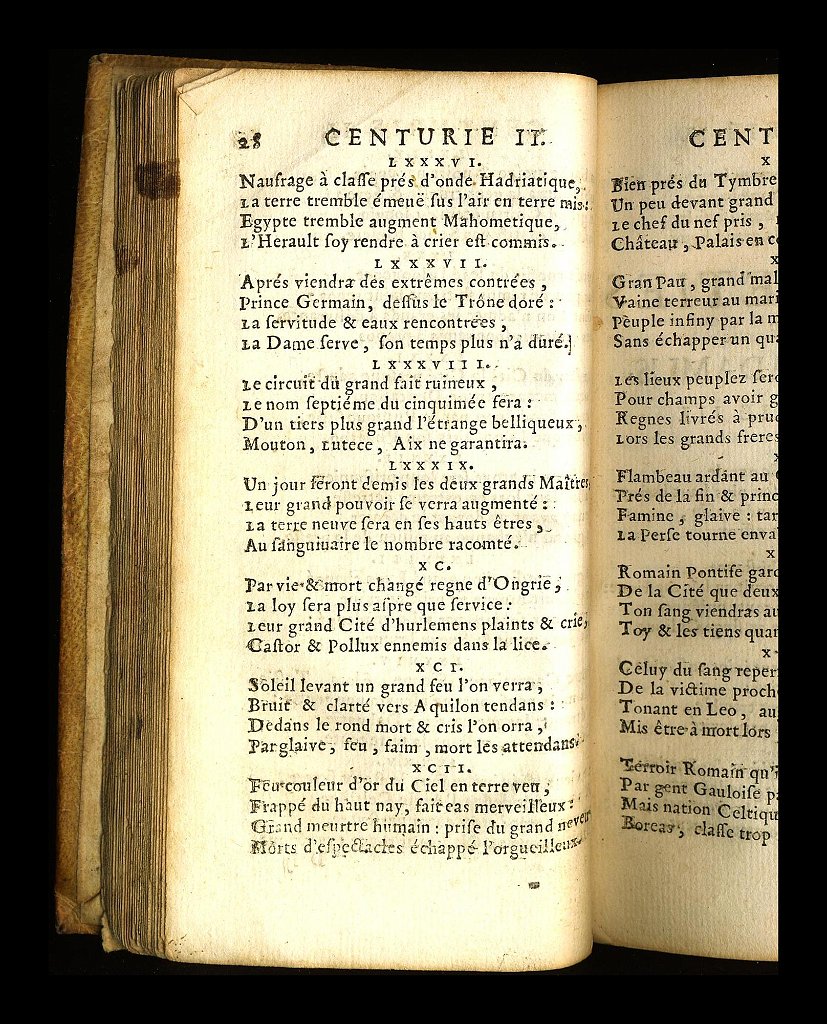 28 CENTURIE II.
LXXXVI.
Naufrage à claſſe prés d'onde Hadriatique,
La terre tremble émeuë ſus l'air en terre mis:
Egypte tremble augment Mahometique,
L'Herault ſoy rendre à crier eſt commis.
LXXXVII.
Aprés viendra des extrêmes contrées,
Prince Germain, deſſus le Trône doré:
La ſervitude & eaux rencontrées,
La Dame ſerve, ſon temps plus n'a duré.
LXXXVIII.
Le circuit du grand fait ruineux,
Le nom ſeptiéme du cinquimée ſera:
D'un tiers plus grand l'étrange belliqueux,
Mouton, Lutece, Aix ne garantira.
LXXXIX.
Un jour ſeront demis les deux grands Maîtres,
Leur grand pouvoir ſe verra augmenté:
La terre neuve ſera en ſes hauts êtres,
Au ſanguiuaire le nombre racomté.
XC.
Par vie & mort changé regne d'Ongrie,
La loy ſera plus aſpre que ſervice:
Leur grand Cité d'hurlemens plaints & crie,
Caſtor & Pollux ennemis dans la lice.
XCI.
Soleil levant un grand feu l'on verra,
Bruit & clarté vers Aquilon tendans:
Dedans le rond mort & cris l'on orra,
Par glaive, feu, faim, mort les attendans.
XCII.
Feu couleur d'or du Ciel en terre veu,
Frappé du haut nay, fait cas merveilleux:
Grand meurtre humain: priſe du grand neveu
Morts d'eſpectacles échappé l'orgueilleux.
CENT
X
Bien prés du Tymbre
Un peu devant grand
Le chef du nef pris,
Château, Palais en
X
Gran Pau, grand mal
Vaine terreur au mari
Peuple infiny par la m
Sans échapper un qua
Les lieux peuplez ſero
Pour champs avoir g
Regnes livrés à pru
Lors les grands freres
X
Flambeau ardant au
Prés de la fin & princ
Famine, glaive: tar
La Perſe tourne enva
X
Romain Pontife gard
De la Cité que deux
Ton ſang viendras au
Toy & les tiens quan
X
Celuy du ſang reper
De la victime proch
Tonant en Leo, au
Mis être à mort lors
Terroir Romain qu'i
Par gent Gauloiſe p
Mais nation Celtiqu
Boreas, claſſe trop